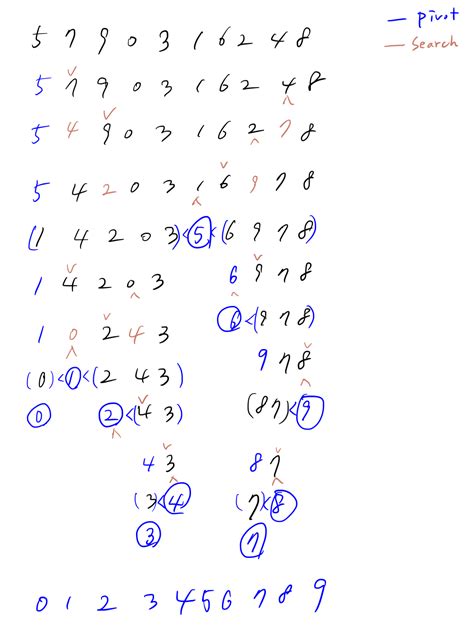 5 7 9 0 3 1 6 2 4 8
— pivot
— search
5 7 9 0 3 1 6 2 4 8
5 4 9 0 3 1 6 2 7 8
5 4 2 0 3 1 6 9 7 8
(1 4 2 0 3) < 5 < (6 9 7 8)
1 4 2 0 3 6 9 7 8
1 0 2 4 3 6 < (9 7 8)
9 7 8
(0) < 1 < (2 4 3)
0 2 < (4 3) (8 7) < 9
4 3 8 7
(3) < 4 (7) < 8
3 7
0 1 2 3 4 5 6 7 8 9